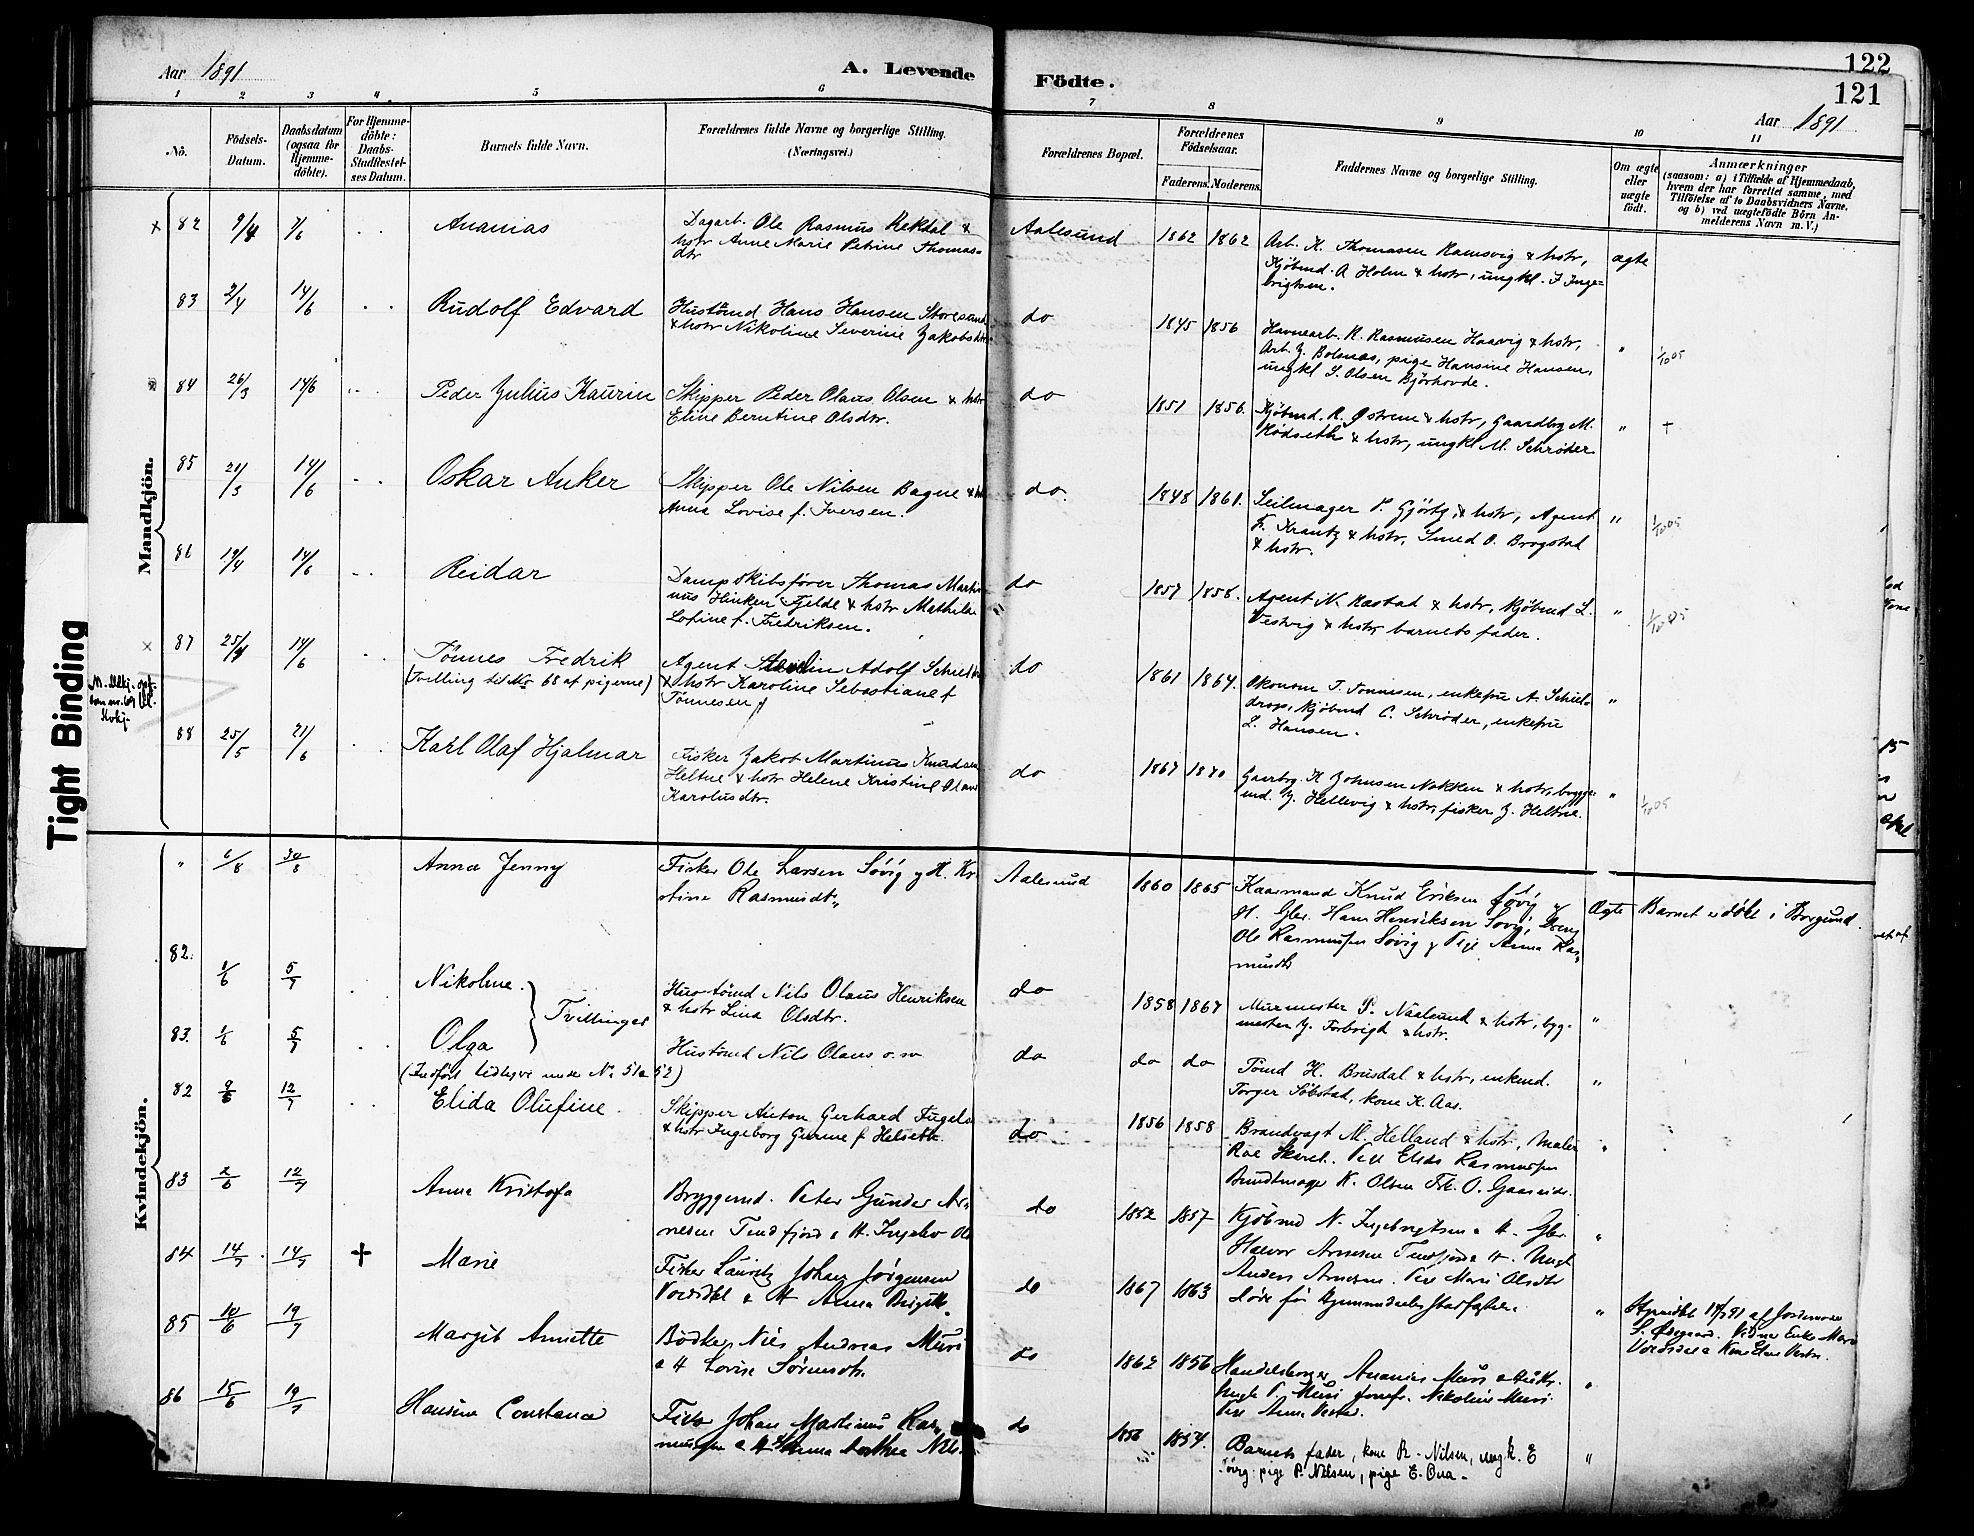 122
121
Aar 1891
A. Levende
Födte.
Aar 1891
1 2 3 4 5 6 7 8 9 10 11
No.
Födsels-
Datum.
Daabsdatum
(ogsaa för
Hjemme-
döbte).
For Hjemme-
döbte:
Daabs-
Stadfæstel-
ses Datum.
Barnets fulde Navn.
Forældrenes fulde Navne og borgerlige Stilling.
(Næringsvei.)
Forældrenes Bopæl.
Forældrenes
Födselsaar.
Faderens. Moderens.
Faddernes Navne og borgerlige Stilling.
Om ægte
eller
uægte
födt.
Anmærkninger
(saasom: a) i Tilfælde af Hjemmedaab,
hvem der har forrettet samme, med
Tilföielse af to Daabsvidners Navne.
og b) ved uægtefödte Börn An-
melderens Navn m. V.)
Mandkjön.
Tight Binding
x 82 9/4 7/6 Ananias
Dagarb. Ole Rasmus Rekdal &
hstr Anne Marie Petrine Thomas-
dtr
Aalesund 1862 1862
Arb. K. Thomasen Ramsvig & hstr,
Kjöbmd. A Holm & hstr, ungkl. I Inge-
brigtsen.
ægte
83 2/4 14/6 Rudolf Edvard
Hustömd Hans Hansen Storesund
& hstr Nikoline Severine Jakobsdtr
do 1845 1856
Havnearb. R. Rasmusen Haavig & hstr,
Arb. J. Bolsnæs, pige Hansine Hansen,
ungkl S. Olsen Björhovde.
"
84 26/3 14/6 Peder Julius Kaurin
Skipper Peder Olaus Olsen & hstr
Eline Berntine Olsdtr.
do 1851 1856.
Kjöbmd. R. Östrem & hstr, Gaardbr M.
Rödseth & hstr, ungkl M. Schröder
" †
85 21/3 14/6 Oskar Anker
Skipper Ole Nilsen Bagne & hstr
Anna Lovise f. Iversen.
do. 1848 1861.
Seilmager P. Gjörtz & hstr, Agent
F. Krantz & hstr, Smed O. Brogstad
& hstr.
"
86 19/4 14/6 Reidar
Dampskibsförer Thomas Martin
nus Hinken Fjelde & hstr Mathilde
Lofine f. Fredriksen.
do 1857 1858.
Agent N. Rastad & hstr, Kjöbmd L.
Vestvig & hstr, barnets fader.
"
87 25/4 14/6 Tönnes Fredrik
(Tvilling til No 68 af pigerne)
Agent Adolf
& hstr Karoline Sebastiane f
Tönnesen
do 1861 1864.
Ökonom T. Tönnesen, enkefru A. Schiel-
drop, Kjöbmd C. Schröder, enkefru
L. Hansen.
"
88 25/5 21/6 Karl Olaf Hjalmar
Fisker Jakob Martinus Knudsen
Heltne & hstr Helene Kristine
Karolusdtr.
do 1867 1870
Gaardbr. K Johnsen Nakken & hstr, brygge-
md. J. Hellevig & hstr, fisker J. Heltne.
"
Kvindekjön.
" 6/8 30/8 Anna Jenny
Fisker Ole Larsen Sövig og H. Kri-
stine Rasmusdtr.
Aalesund 1860 1865
Kaarmand Knud Eriksen Sövig &
H. Gbr. Hans Henriksen Sövig, Dreng
Ole Rasmussen Sövig og Pige Anna Ras-
musdtr
Ægte
Barnet er döbt i Borgund.
82. 1/6 5/7 Nikoline.
Tvillinger
Hustömd Nils Olaus Henriksen
& hstr Lina Olsdtr.
do 1858 1867
Murmester P. Aalesund & hstr, byg-
mester J. Forbrigd & hstr.
"
83. 1/6 5/7 Olga
(Indfört tidligere under No 51 & 52)
Hustömd Nils Olaus o.s.v
do do do
Tömd H. Brusdal & hstr, enkemd.
Torger Söbstad, kone K. Aas.
"
82 12/7 Elida Olufine.
Skipper Anton Gerhard Fugels
& hstr Ingeborg Gurine f. Helseth
do 1856 1858
Brandvagt M. Helland & hstr, Maler
Roe Skaret. Pige Elida Rasmussen
Bundtmager K. Olsen
"
83 2/6 12/7 Anna Kristofa
Bryggemd. Peter Gunder Ar-
nesen Tendfjord & H. Ingebor
do 1852 1857
Kjöbmd N. Ingebrigtsen & H. Gbr.
Halvor Arnesen Tennfjord & H. Ungk
Anders Arnesen. Pige Marie Olsdtr
"
84 14/7. 14/7 † Marie
Fisker Lauritz Johan Jörgensen
Vorsdal & H Anna Birgitte.
do 1867 1863
Döde för Hjemmedaabsstadfæstelse
"
Hjemdöbt 14/7 91 af Jordemor
S. Ödegaard. Vidner Enke Marie
Vorsdal & Kone Else
85 10/6 19/7 Margit Annette
Bödker Nils Andreas Muri
& H Lovise Sörensdtr.
do 1862 1856
Handelsborger Ananias Muri & Hustr.
Ungk P. Muri Jomfr. Nikoline Muri
Pige Anna
"
86 15/6 19/7 Hansine Constance
Fisker Johan Martinus Ras-
mussen & H Hanna Dorthea Nils
do 1856 1854.
Barnets fader, kone R. Nilsen, ungk. E
pige P. Nilsen, pige E. Ona.
"